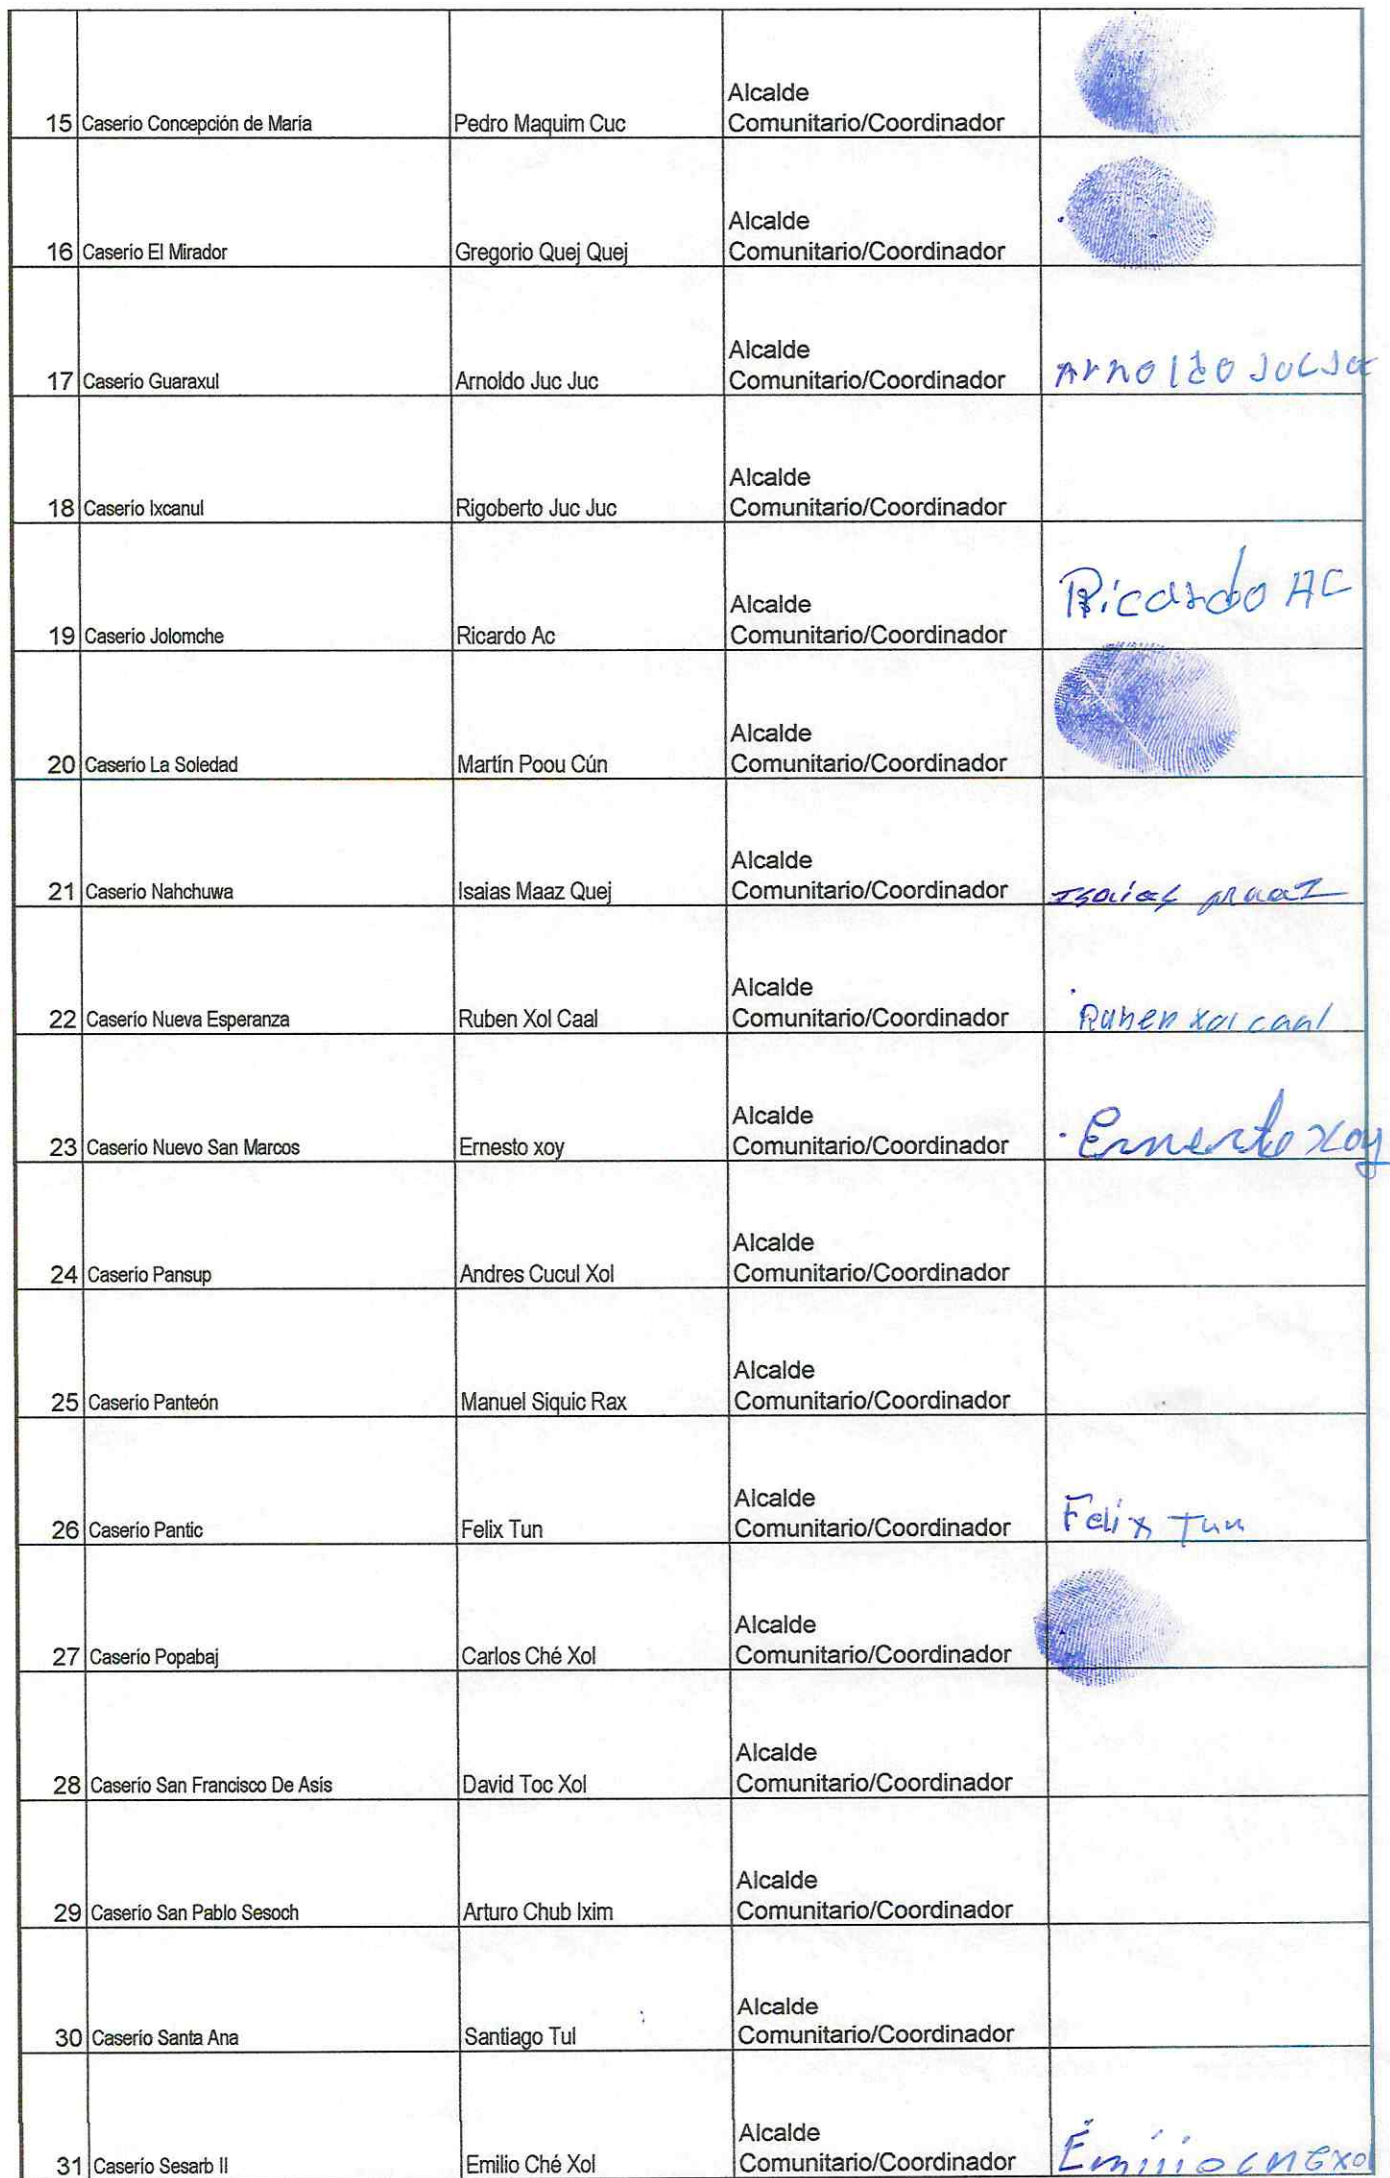 15 Caserio Concepción de María Pedro Maquim Cuc Alcalde
Comunitario/Coordinador
16 Caserio El Mirador Gregorio Quej Quej Alcalde
Comunitario/Coordinador
17 Caserio Guaraxul Arnoldo Juc Juc Alcalde
Comunitario/Coordinador Arnoldo Juc Juc
18 Caserío Ixcanul Rigoberto Juc Juc Alcalde
Comunitario/Coordinador
19 Caserio Jolomche Ricardo Ac Alcalde
Comunitario/Coordinador Ricardo AC
20 Caserío La Soledad Martín Poou Cún Alcalde
Comunitario/Coordinador
21 Caserio Nahchuwa Isaias Maaz Quej Alcalde
Comunitario/Coordinador Isaias maaz
22 Caserío Nueva Esperanza Ruben Xol Caal Alcalde
Comunitario/Coordinador Ruben xol caal
23 Caserio Nuevo San Marcos Ernesto xoy Alcalde
Comunitario/Coordinador Ernesto xoy
24 Caserio Pansup Andres Cucul Xol Alcalde
Comunitario/Coordinador
25 Caserío Panteón Manuel Siquic Rax Alcalde
Comunitario/Coordinador
26 Caserío Pantic Felix Tun Alcalde
Comunitario/Coordinador Felix Tun
27 Caserío Popabaj Carlos Ché Xol Alcalde
Comunitario/Coordinador
28 Caserío San Francisco De Asís David Toc Xol Alcalde
Comunitario/Coordinador
29 Caserío San Pablo Sesoch Arturo Chub Ixim Alcalde
Comunitario/Coordinador
30 Caserío Santa Ana Santiago Tul Alcalde
Comunitario/Coordinador
31 Caserío Sesarb II Emilio Ché Xol Alcalde
Comunitario/Coordinador Emilio che xol